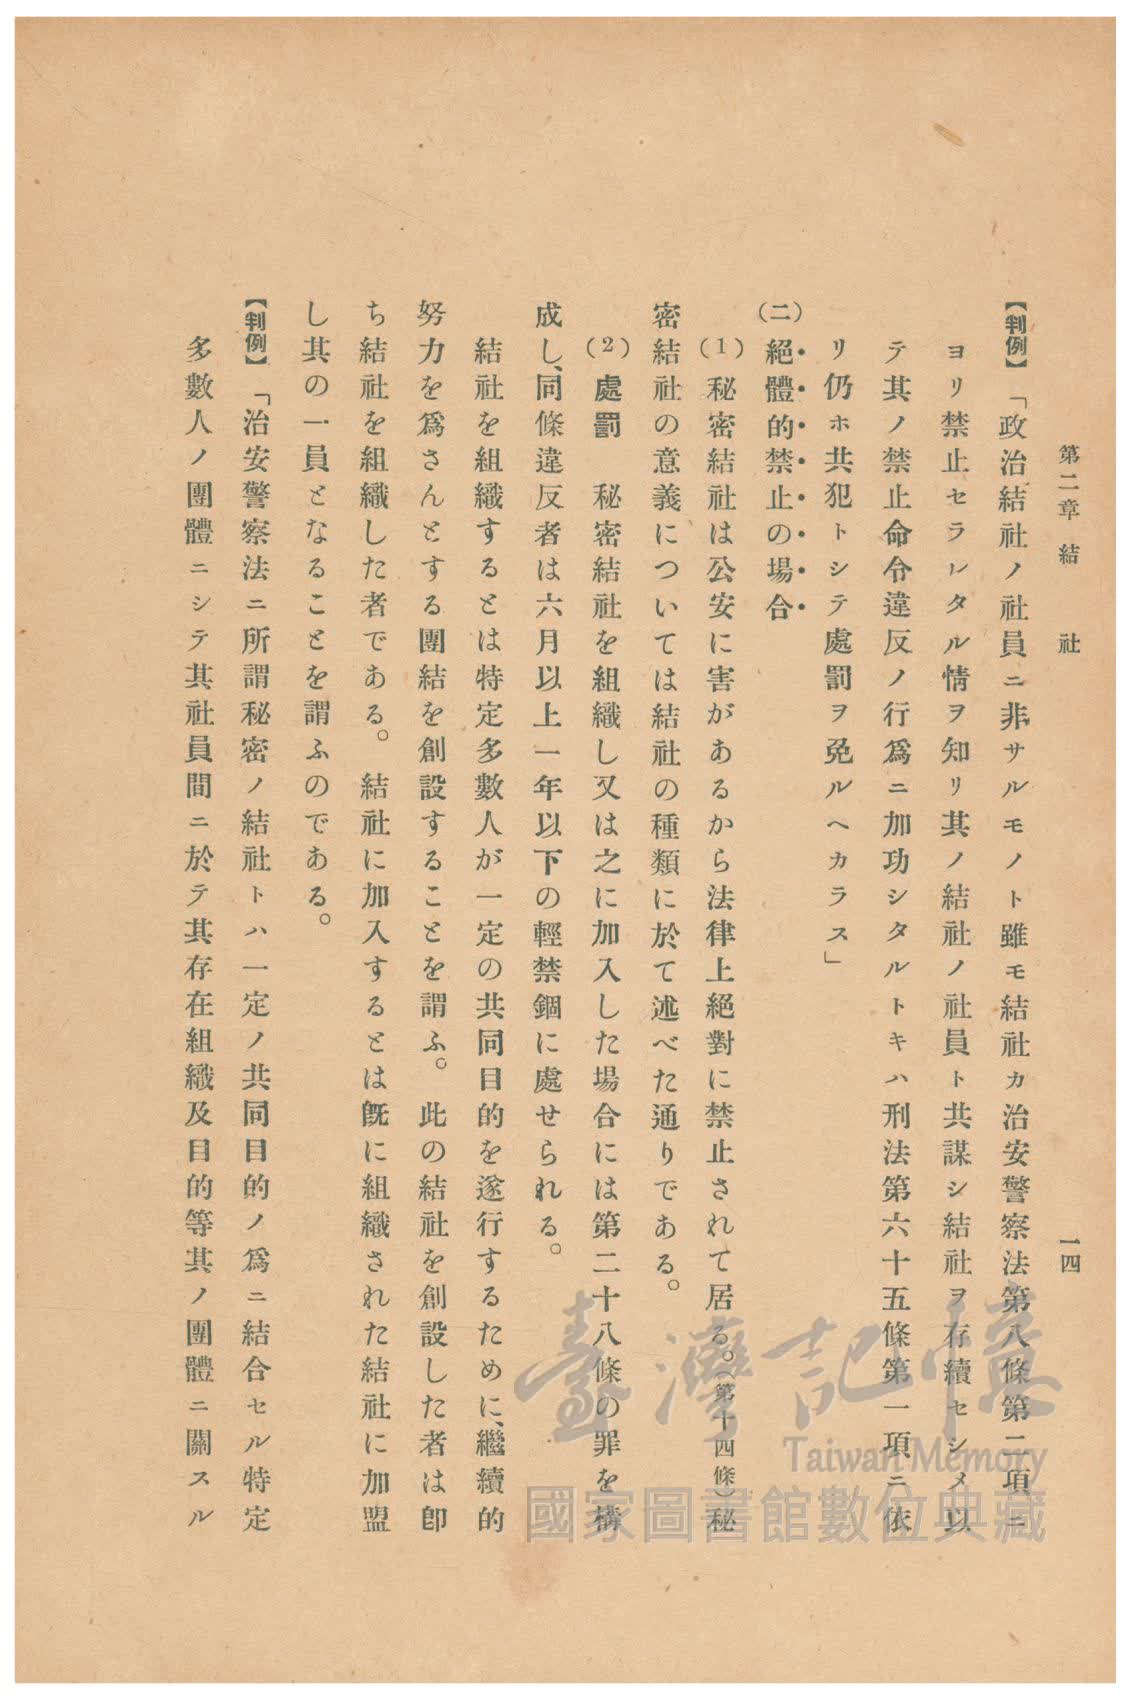 第二章 結 社
一四
【判例】「政治結社ノ社員ニ非サルモノト雖モ結社カ治安警察法第八條第二項ニ
ヨリ禁止セラレタル情ヲ知リ其ノ結社ノ社員ト共謀シ結社ヲ存續セシメ以
テ其ノ禁止命令違反ノ行爲ニ加功シタルトキハ刑法第六十五條第一項ニ依
リ仍ホ共犯トシテ處罰ヲ免ルヘカラス」
(二)絕體的禁止の場合
(1)秘密結社は公安に害があるから法律上絕對に禁止されて居る。(第十四條)秘
密結社の意義については結社の種類に於て述べた通りである。
(2)處罰 秘密結社を組織し又は之に加入した場合には第二十八條の罪を構
成し、同條違反者は六月以上一年以下の輕禁錮に處せられる。
結社を組織するとは特定多數人が一定の共同目的を遂行するために、繼續的
努力を爲さんとする團結を創設することを謂ふ。此の結社を創設した者は卽
ち結社を組織した者である。結社に加入するとは旣に組織された結社に加盟
し其の一員となることを謂ふのである。
【判例】「治安警察法ニ所謂秘密ノ結社トハ一定ノ共同目的ノ爲ニ結合セル特定
多數人ノ團體ニシテ其社員間ニ於テ其存在組織及目的等其ノ團體ニ關スル
臺灣記憶
Taiwan Memory
國家圖書館數位典藏